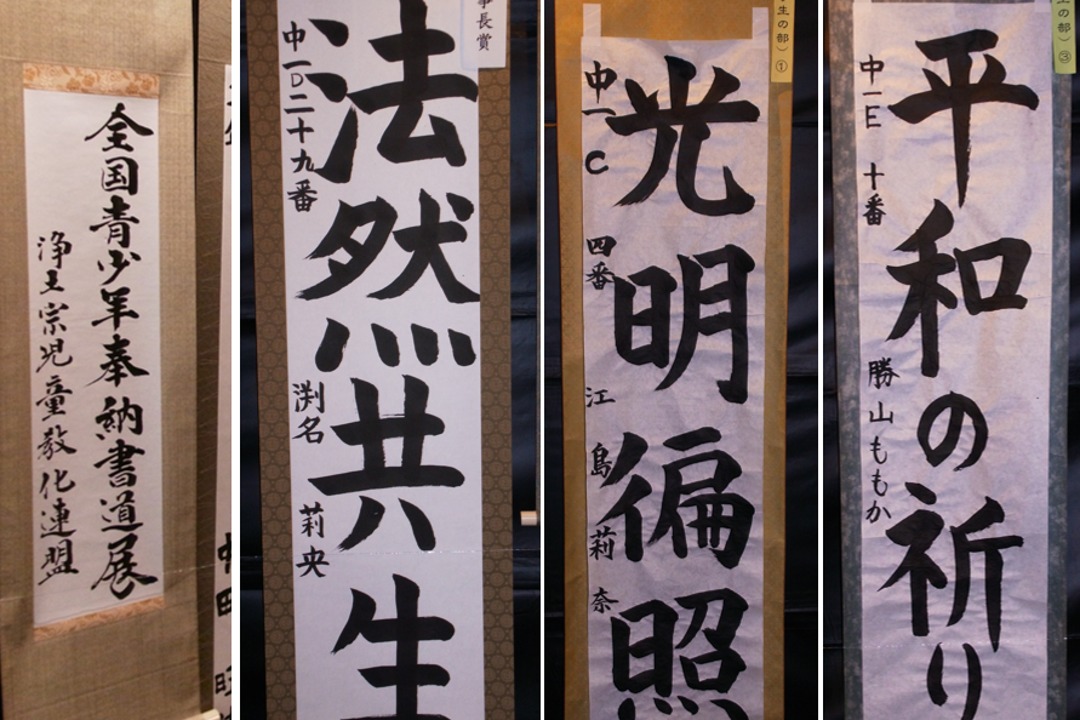 全国青少年奉納書道展
浄土宗児童教化連盟
事長賞
法然共生
中一D二十九番
渕名 莉央
生の部）①
光明徧照
中一C 四番 江島莉奈
生の部）③
平和の祈り
中一E 十番 勝山ももか